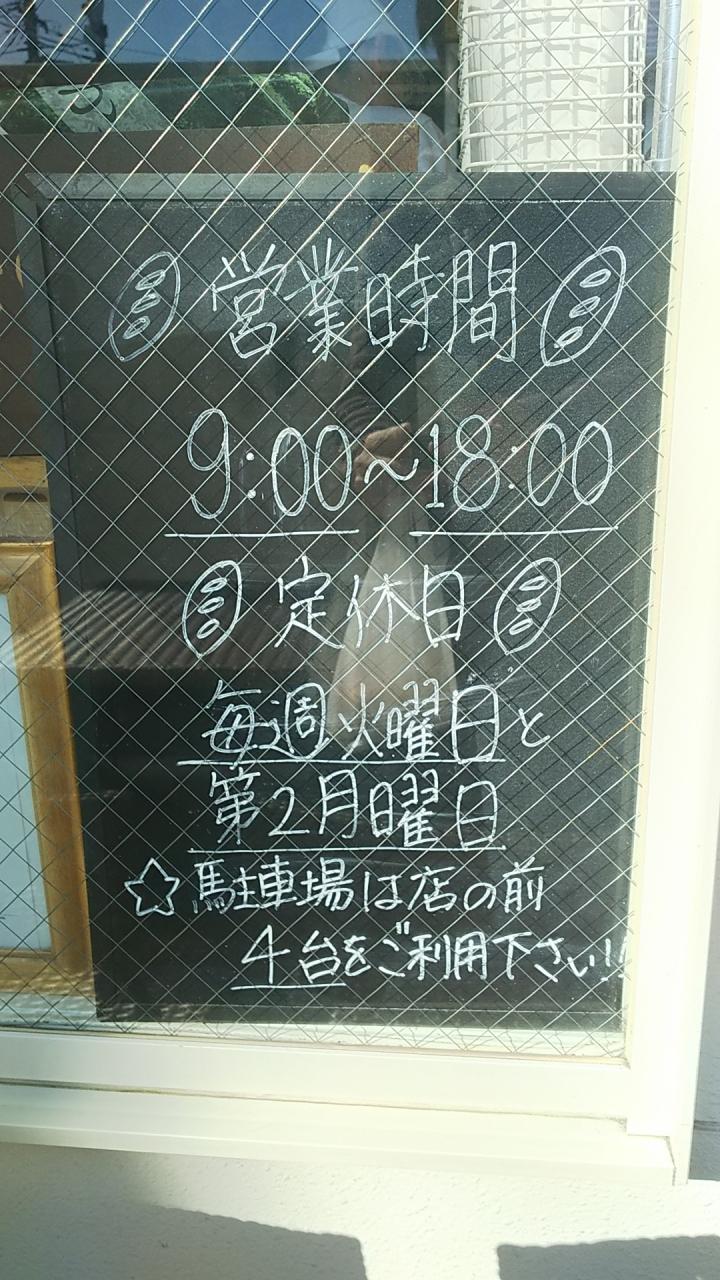 営業時間
9:00~18:00
定休日
毎週火曜日と
第2月曜日
☆駐車場は店の前
4台をご利用下さい!!